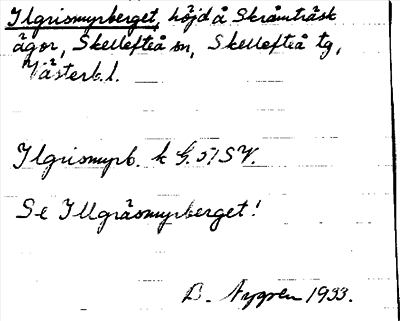 Ilgrismyrberget, höjd å Skråmträsk
ägor, Skellefteå sn, Skellefteå tg,
Västerb. l.
Ilgrismyrb. k G. 51 SV.
Se Illgräsmyrberget!
D. Nygren 1933.